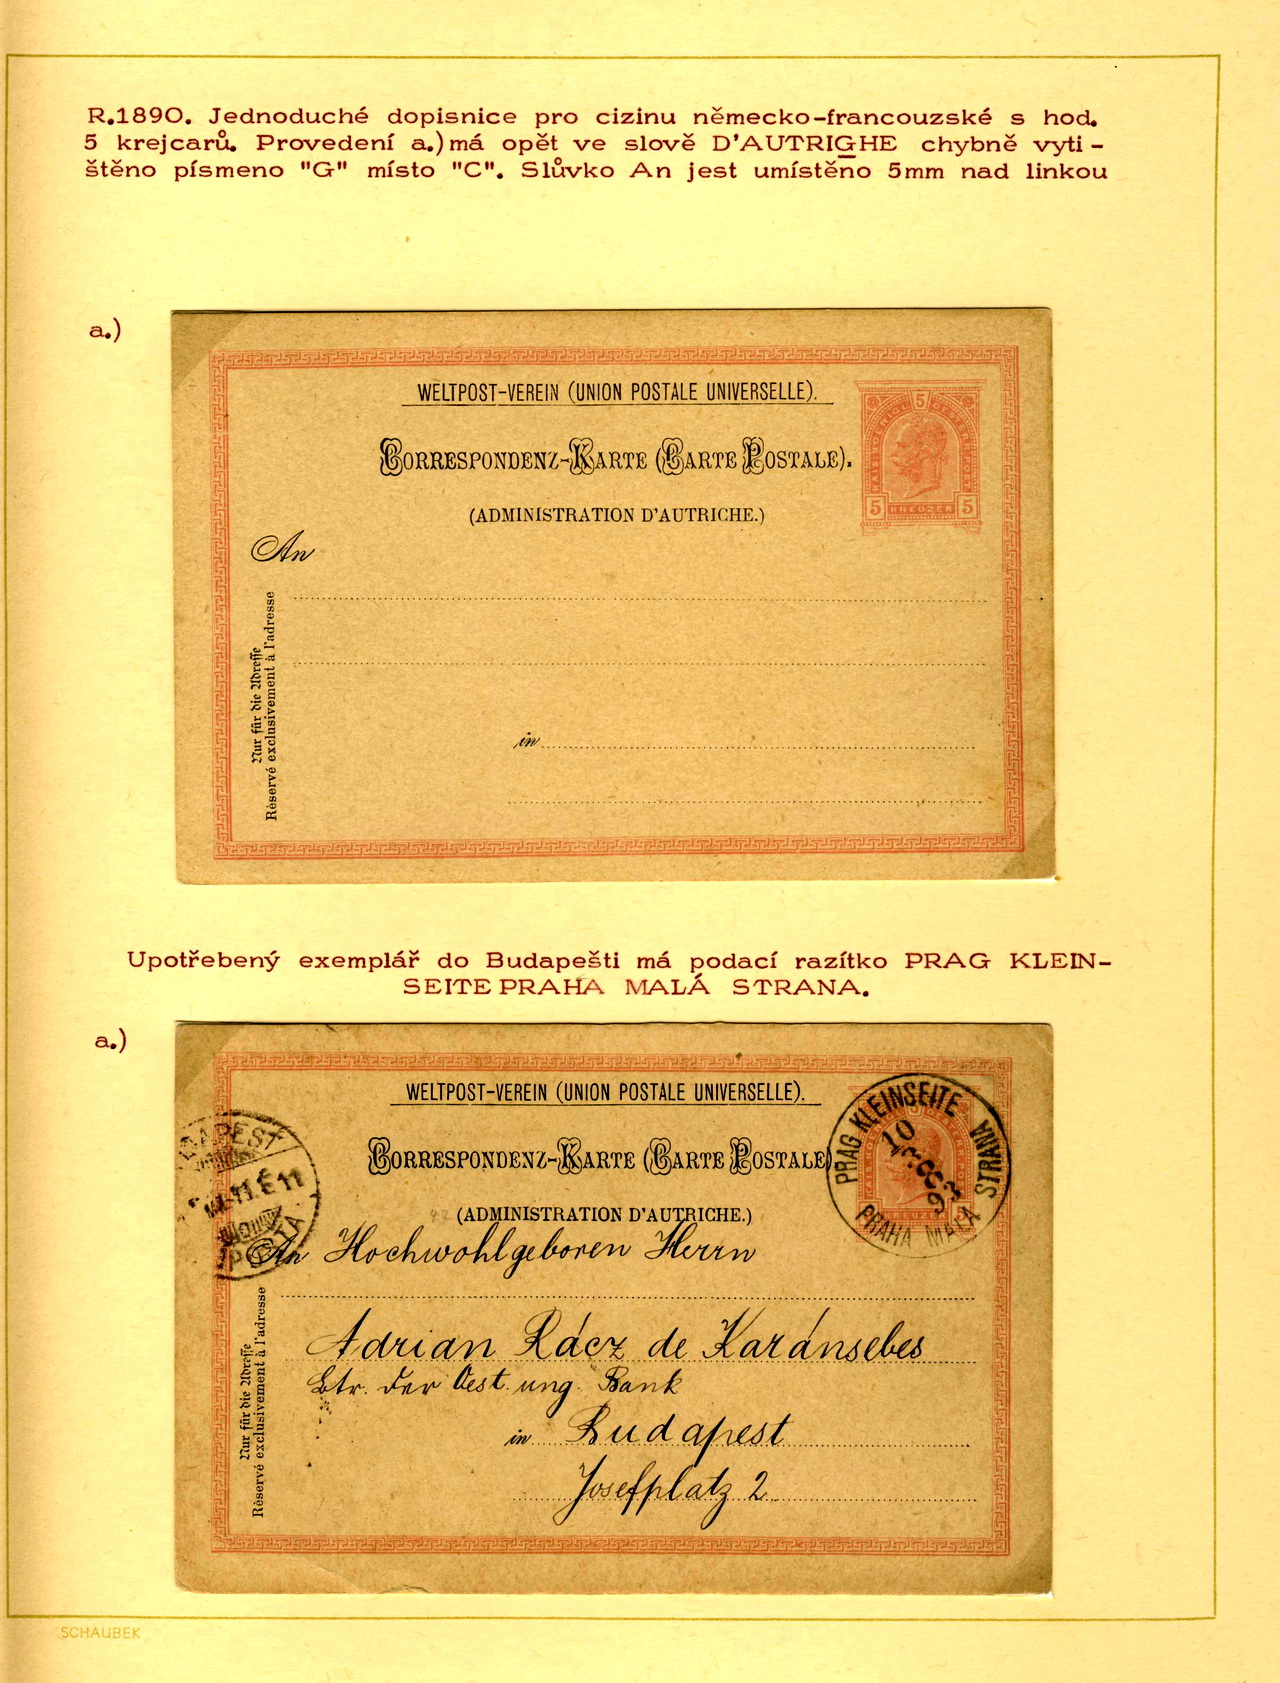 R.1890. Jednoduché dopisnice pro cizinu německo-francouzské s hod.
5 krejcarů. Provedení a.)má opět ve slově D'AUTRIGHE chybně vyti-
štěno písmeno "G" místo "C". Slůvko An jest umístěno 5mm nad linkou
a.)
WELTPOST-VEREIN (UNION POSTALE UNIVERSELLE).
CORRESPONDENZ-KARTE (CARTE POSTALE).
(ADMINISTRATION D'AUTRICHE.)
KAIS. KOENIGL. 5 OESTERR. POST
5 KREUZER 5
An
Nur für die Adresse
Réservé exclusivement à l'adresse
in
Upotřebený exemplář do Budapešti má podací razítko PRAG KLEIN-
SEITE PRAHA MALÁ STRANA.
a.)
WELTPOST-VEREIN (UNION POSTALE UNIVERSELLE).
CORRESPONDENZ-KARTE (CARTE POSTALE)
(ADMINISTRATION D'AUTRICHE.)
PRAG KLEINSEITE
PRAHA MALÁ STRANA
10
93
KREUZER
DAPEST
POSTA
An Hochwohlgeboren Herrn
Adrian Rácz de Karánsebes
der Oest. ung. Bank
in Budapest
Josefplatz 2
Nur für die Adresse
Réservé exclusivement à l'adresse
SCHAUBEK